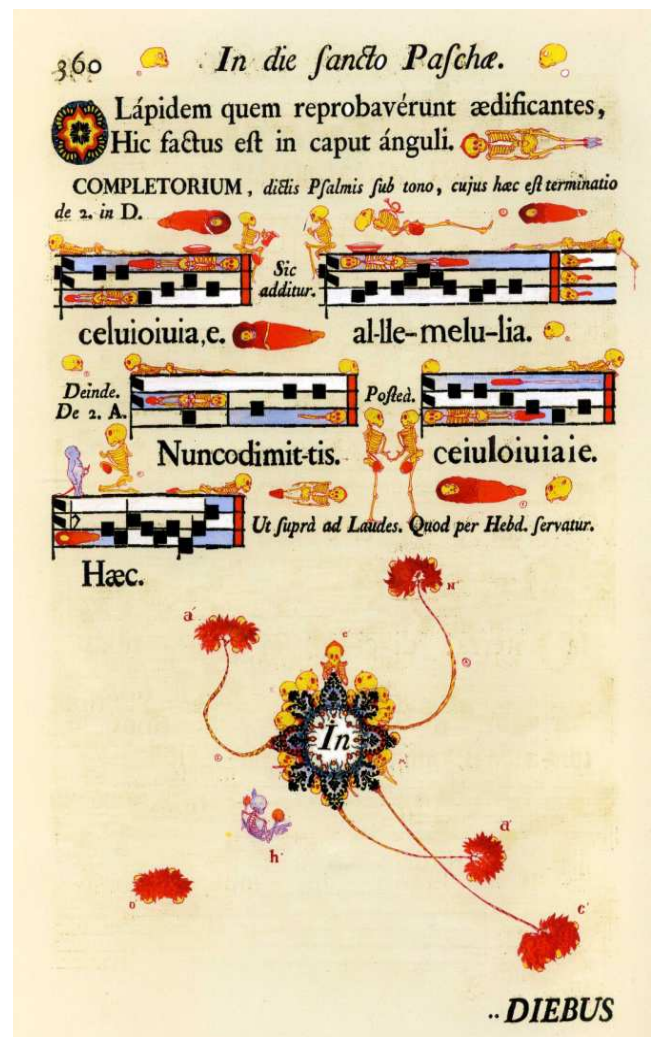 360 In die ſancto Paſchæ.
Lápidem quem reprobavérunt ædificantes,
Hic factus eſt in caput ánguli.
COMPLETORIUM, dictis Pſalmis ſub tono, cujus hæc eſt terminatio
de 2. in D.
Sic
additur.
celuioiuia,e. al-lle-melu-lia.
Deinde.
De 2. A.
Poſteà.
Nuncodimit-tis. ceiuloiuiaie.
Ut ſuprà ad Laudes. Quod per Hebd. ſervatur.
Hæc.
N
a
c
In
h
a
o
c
..DIEBUS